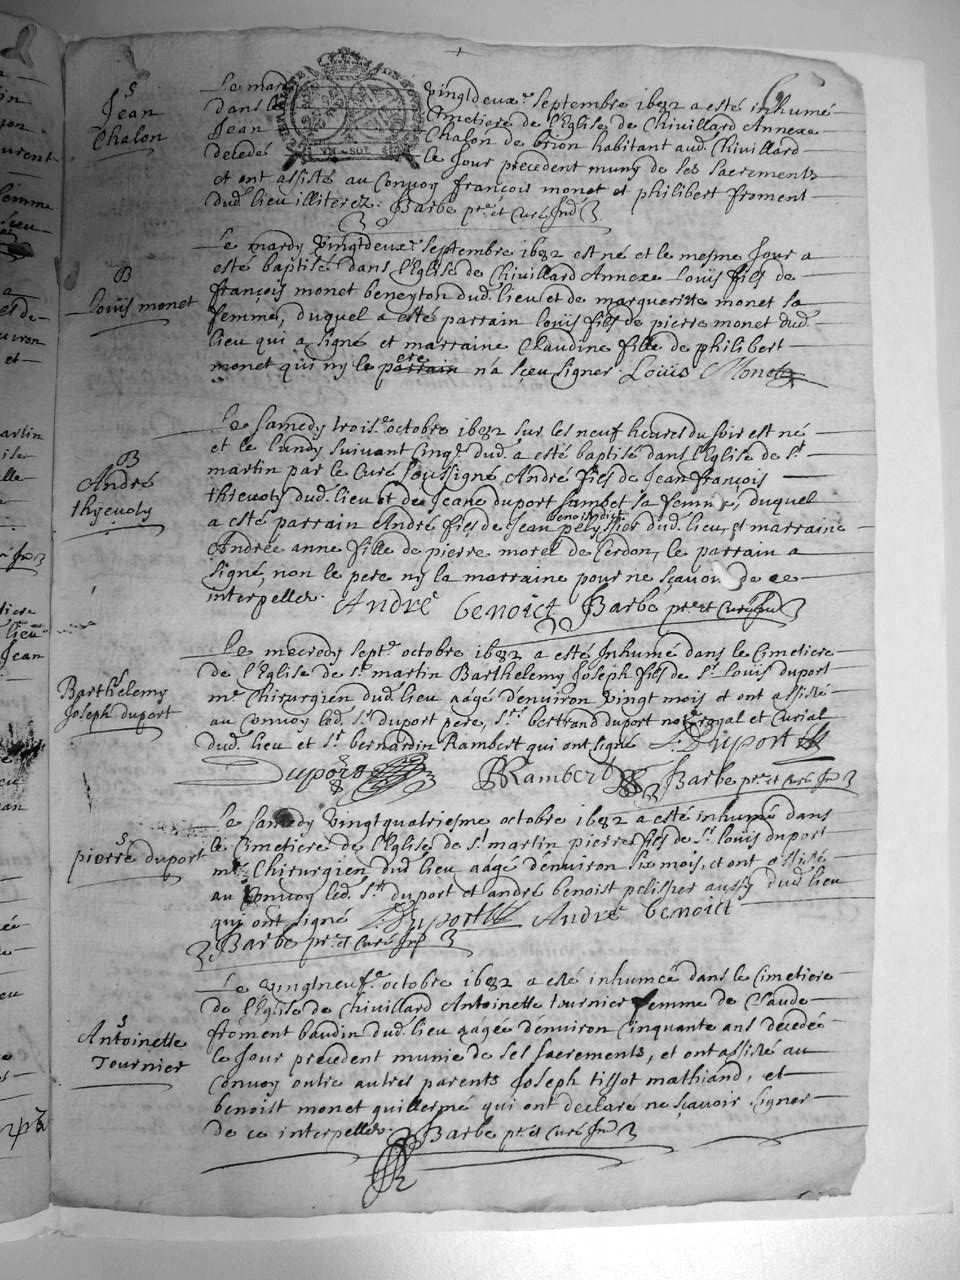 S
Jean
Chalon
Le mardy vingtdeuxe. Septembre 1682 a esté inhumé
dans le Cimetiere de l'Eglise de Chivillard Annexe
Jean Chalon de brion habitant aud. Chivillard
decedé le Jour precedent muny de ses Sacrements
et ont assisté au Convoy françois monet et philibert froment
dud. lieu illiterez. Barbe ptre. et Curé
B
Loüis monet
Le mardy vingtdeuxe. Septembre 1682 est né et le mesme Jour a
esté baptisé dans l'Eglise de Chivillard Annexe Loüis fils de
françois monet beneyton dud. lieu et de marguerite monet sa
femme, duquel a esté parrain loüis fils de pierre monet dud.
lieu qui a signé et marraine Claudine fille de philibert
monet qui ny le pere parrain n'a sçeu signer. Loüis Monet
B
André
Le Samedy trois.e octobre 1682 sur les neuf heures du soir est né
et le lundy suivant Cinq.e dud. a esté baptisé dans l'Eglise de St.
martin par le Curé Soussigné André fils de Jean françois
dud. lieu et de Jeane duport Sambet sa femme, duquel
a esté parrain André fils de Jean benoist dit pelyssier dud. lieu, et marraine
Andrée anne fille de pierre morel de Cerdon, le parrain a
signé, non le pere ny la marraine pour ne sçavoir de ce
interpellez. André benoict Barbe ptre. et Curé
Barthelemy
Joseph duport
Le mecredy sept.e octobre 1682 a esté Inhumé dans le Cimetiere
de l'Eglise de St. martin Barthelemy Joseph fils de Sr. Loüis duport
me. Chirurgien dud. lieu aagé d'environ vingt mois et ont assisté
au Convoy led. Sr. duport pere, Sr. bertrand duport not. royal et Curial
dud. lieu et Sr. bernardin Rambert qui ont signé L. Duport
Duport BRambert Barbe ptre. et Curé
S
pierre duport
Le Samedy vingtquatriesme octobre 1682 a esté inhumé dans
le Cimetiere de l'Eglise de St. martin pierre fils de Sr. Loüis duport
me. Chirurgien dud. lieu aagé d'environ six mois, et ont assisté
au Convoy led. Sr. duport et andré benoist pelissier aussy dud. lieu
qui ont signé L. Duport André benoict
Barbe ptre. et Curé
S
Antoinette
Tournier
Le vingtneuf.e octobre 1682 a esté inhumée dans le Cimetiere
de l'Eglise de Chivillard Antoinette tournier femme de Claude
froment baudin dud. lieu aagée d'environ Cinquante ans decedée
le Jour precedent munie de ses sacrements, et ont assisté au
Convoy outre autres parents Joseph tissot mathiand, et
benoist monet guillermé qui ont declaré ne sçavoir signer
de ce interpellez. Barbe ptre. et Curé